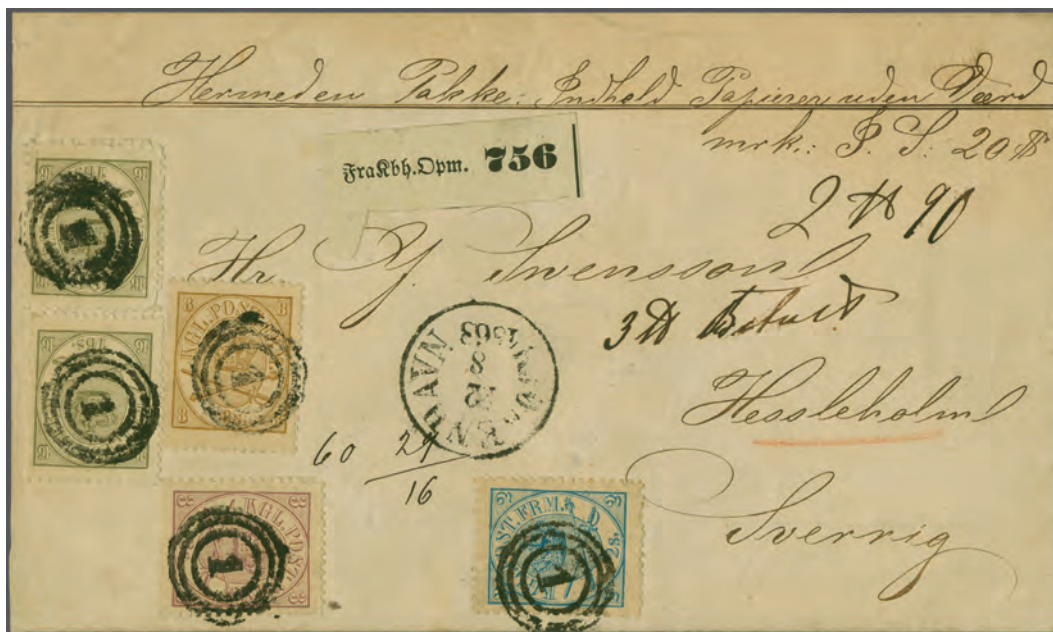 Hermed en Pakke: Indhold Papirer uden Værd
mrk.: P. S: 20 ℔
Fra Kbh. Opm. 756
2 ℔ 90
Hr Svensson
3 ℔
Hessleholm
Sverrig
KGL. POST
8 8
8
1
1
1
60 29
16
KGL. POST
1
POST.FRM.
2
1